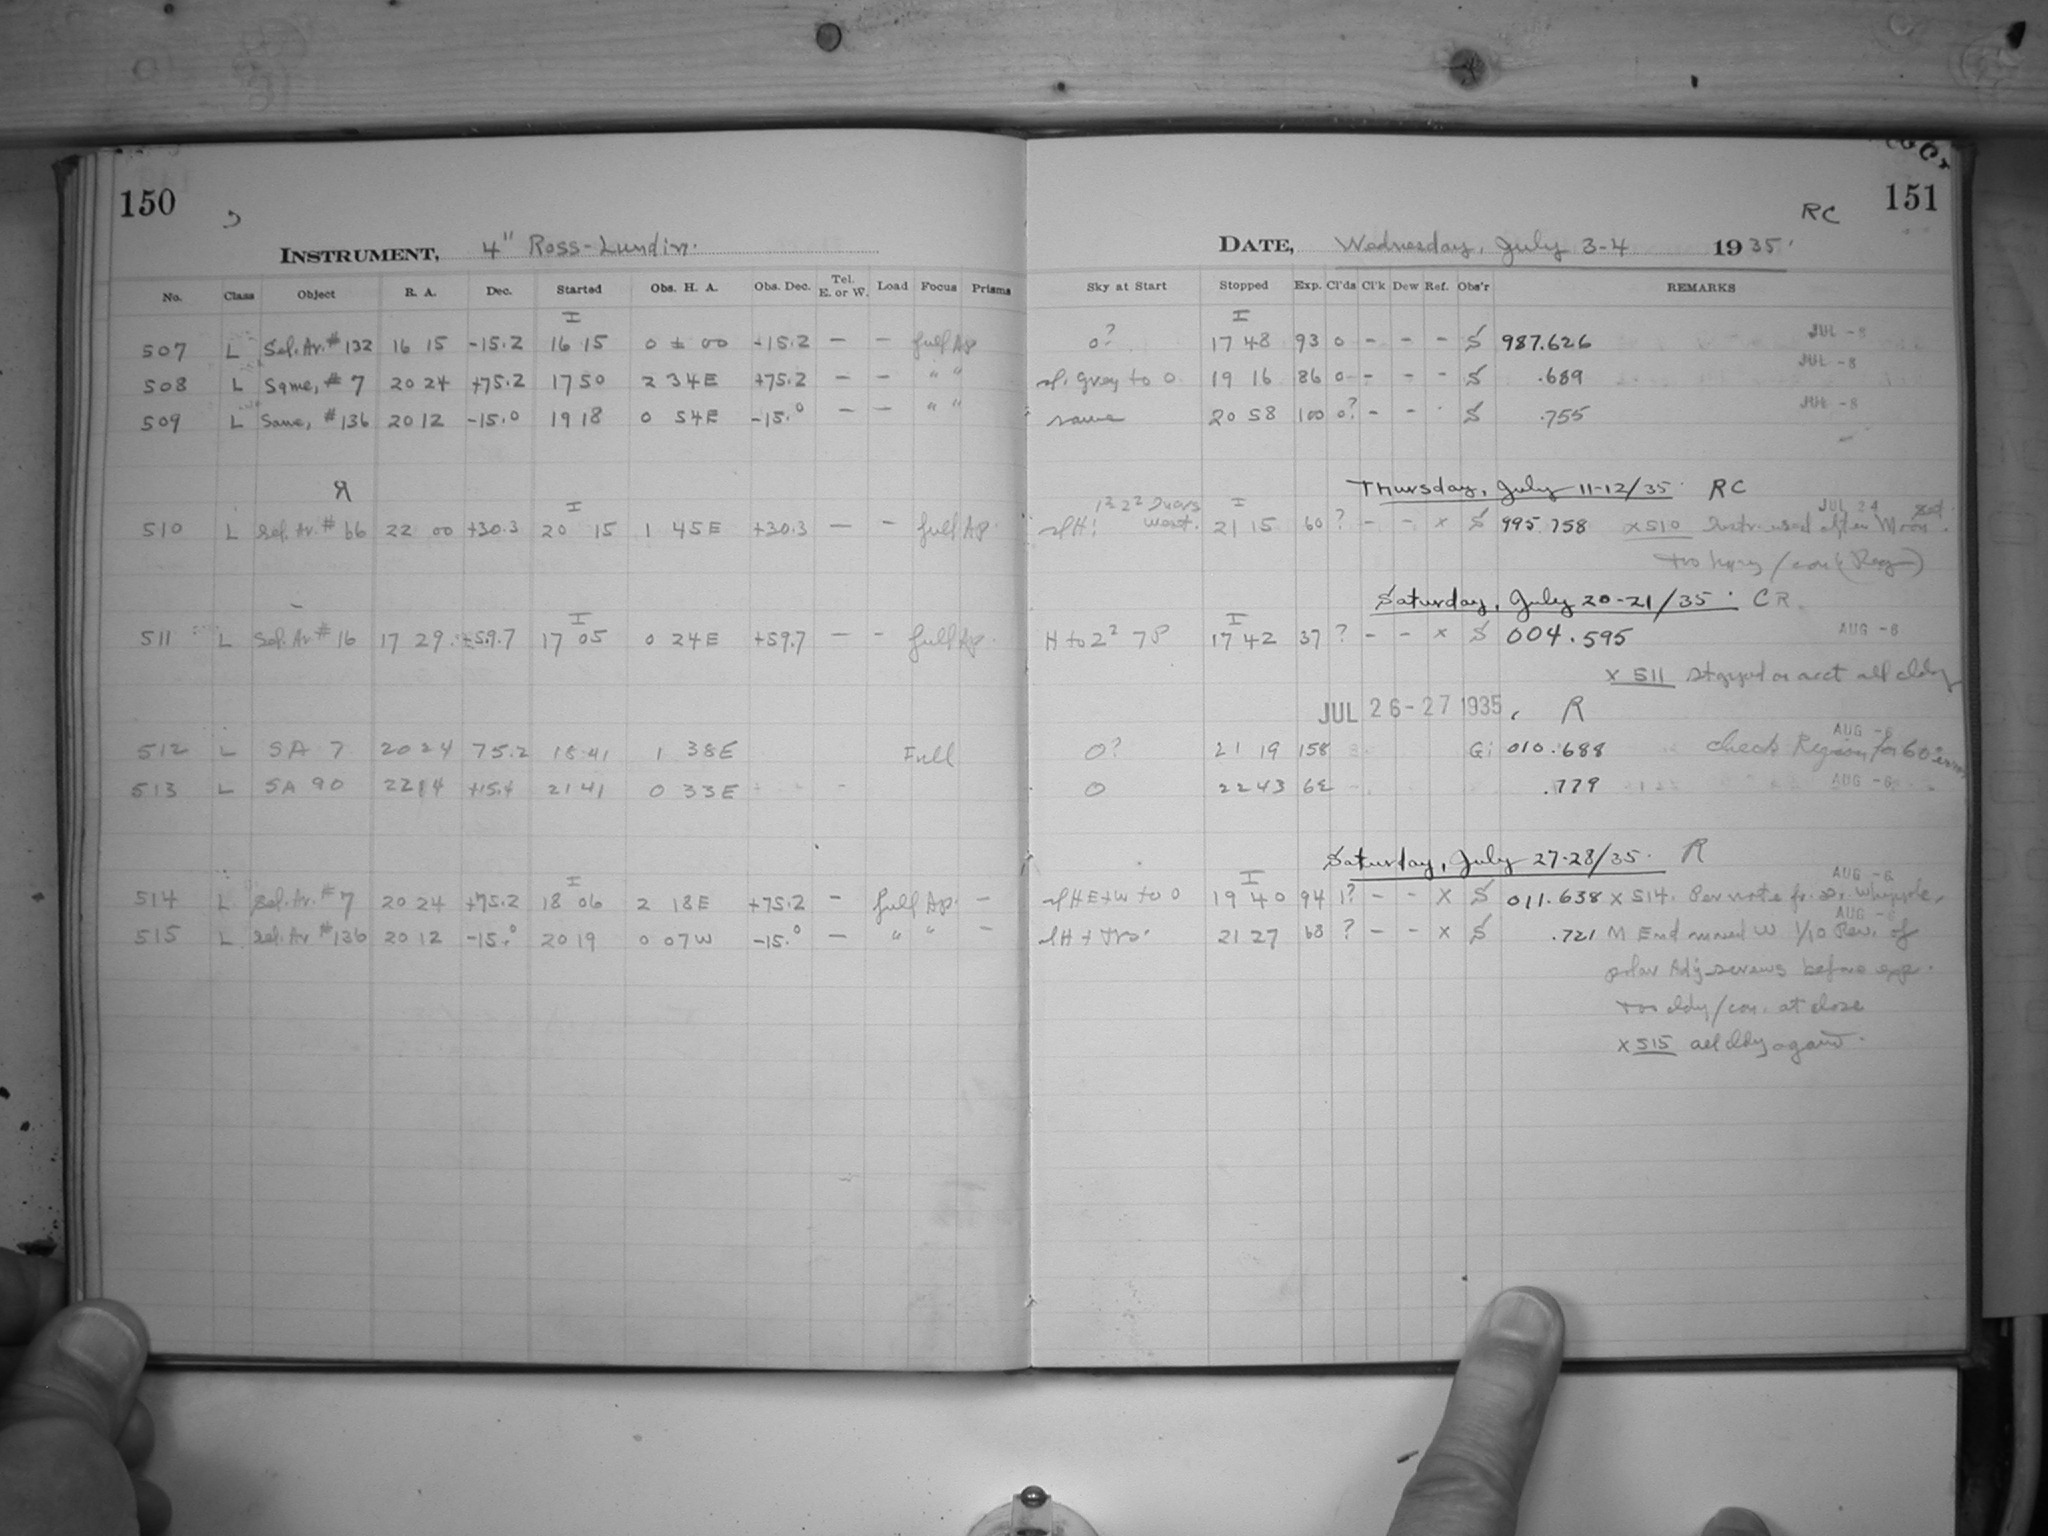 150
INSTRUMENT, 4" Ross-Lundin.
No. Class Object R. A. Dec. Started Obs. H. A. Obs. Dec. Tel. E. or W. Load Focus Prisms
I
507 L Sel. Ar. # 132 16 15 -15.2 16 15 0 ± 00 -15.2 — — full Ap
508 L Same, # 7 20 24 +75.2 17 50 2 34E +75.2 — — " "
509 L Same, # 136 20 12 -15.0 19 18 0 54E -15.0 — — " "
I
510 L Sel. Ar. # 66 22 00 +30.3 20 15 1 45E +30.3 — — full Ap.
I
511 L Sel. Ar # 16 17 29. +59.7 17 05 0 24E +59.7 — - full Ap.
512 L SA 7 20 24 75.2 18 41 1 38E Full
513 L SA 90 2214 +15.4 2141 0 33E
I
514 L Sel. Ar. # 7 20 24 +75.2 18 06 2 18E +75.2 — full Ap. —
515 L Sel. Ar # 136 20 12 -15.0 20 19 0 07W -15.0 — " " —
151
RC
DATE, Wednesday, July 3-4 1935.
Sky at Start Stopped Exp. Cl'ds Cl'k Dew Ref. Obs'r REMARKS
I
0? 17 48 93 0 - - - S 987.626 JUL -8
sl. Grey to 0 19 16 86 0 - - - S .689 JUL -8
same 20 58 100 0? - - - S .755 JUL -8
Thursday, July 11-12/35. RC
I JUL 24
21 15 60 ? - - x S 995.758 x510 after Moon
Saturday, July 20-21/35. CR.
I
H to 2² 7P 17 42 37 ? - - x S 004.595 AUG -6
x 511 Stopped on acct all cldy
JUL 26-27 1935, R
AUG -6
0? 21 19 158 G 010.688 check Region for 60
0 2243 62 .779 AUG -6
Saturday, July 27-28/35. R
I AUG -6
sl H E+W to 0 19 40 94 1? - - x S 011.638 x 514. Per note fr. Dr. Whipple,
AUG -6
21 27 68 ? - - x S .721 M End moved W 1/10 Rev. of
polar Adj. screws before exp.
too cldy/con. at close
x 515 all cldy again.